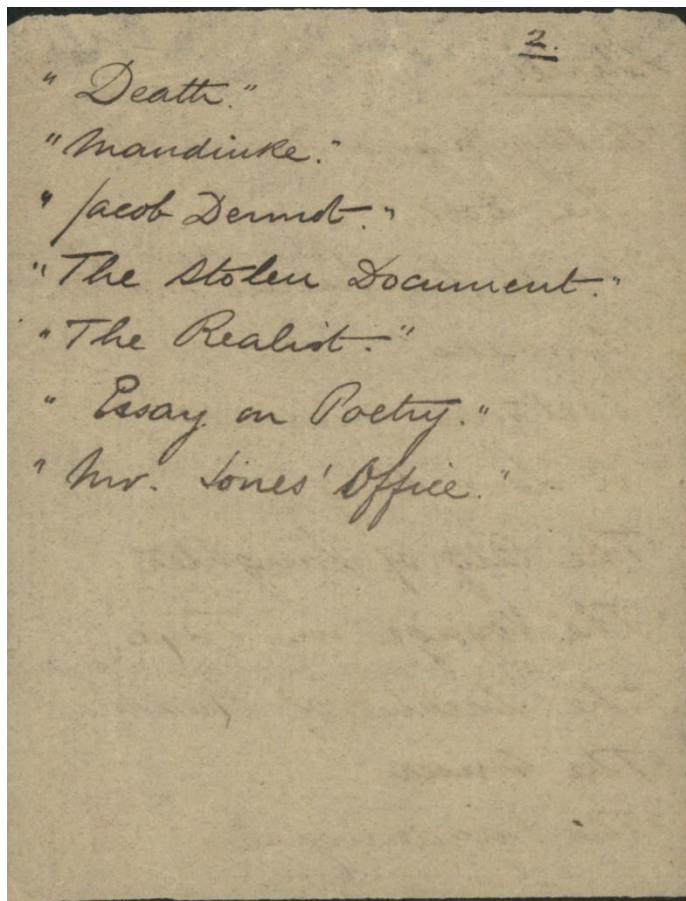 2.
"Death."
"Mandinke."
"Jacob Dermot."
"The Stolen Document."
"The Realist."
"Essay on Poetry."
"Mr. Jones' Office."